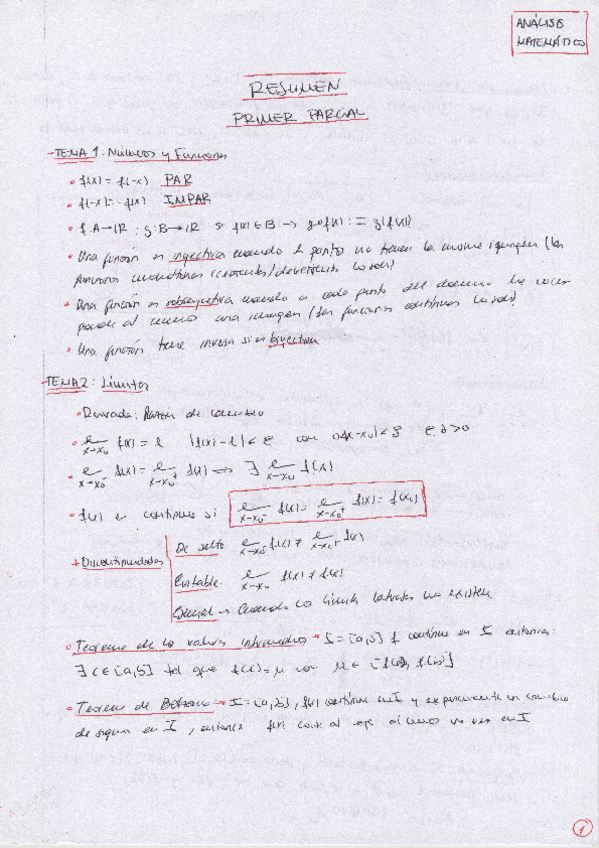 ANÁLISIS
MATEMÁTICO
RESUMEN
PRIMER PARCIAL
- TEMA 1: Números y Funciones
• f(x) = f(-x) PAR
• f(-x) = -f(x) IMPAR
• f: A→IR ; g: B→IR si f(x) ∈ B → g∘f(x) := g(f(x))
• Una función es inyectiva cuando 2 puntos no tienen la misma imagen (las
funciones monótonas (crecientes/decrecientes) lo son)
• Una función es sobreyectiva cuando a cada punto del
al menos una imagen (las funciones continuas lo son)
• Una función tiene inversa si es biyectiva
- TEMA 2: Límites
• Derivada: Razón de cambio
lim x→x₀ f(x) = l |f(x) - l| < ε con 0<|x-x₀| < δ ε, δ > 0
• lim x→x₀⁻ f(x) = lim x→x₀⁺ f(x) ⟺ ∃ lim x→x₀ f(x)
• f(x) es continua si lim x→x₀⁻ f(x) = lim x→x₀⁺ f(x) = f(x₀)
De salto lim x→x₀⁻ f(x) ≠ lim x→x₀⁺ f(x)
+ Discontinuidades
Evitable lim x→x₀ f(x) ≠ f(x)
Esencial → Cuando los límites laterales no existen
• Teorema de los valores intermedios → I = [a,b] f continua en I entonces:
∃ c ∈ [a,b] tal que f(c) = μ con μ ∈ [f(a), f(b)]
• Teorema de Bolzano → I = [a,b], f(x) continua en I y experimenta un cambio
de signo en I, entonces f(x) corta al eje al menos una vez en I
1